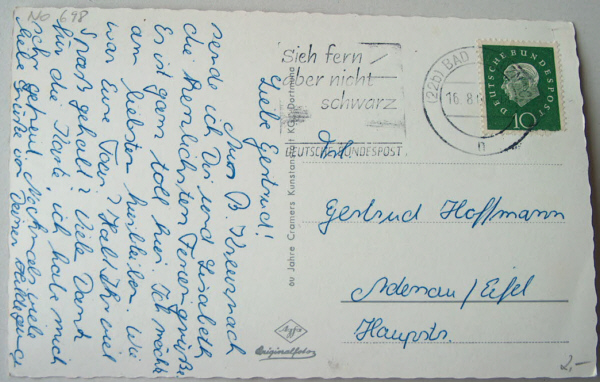 No 698
Liebe Gertrud!
Aus B. Kreuznach
sende ich Dir und Lisabeth
die herzlichsten Feriengrüße.
Es ist ganz toll hier. Ich möchte
am liebsten hierbleiben. Wie
war Eure Tour? Habt Ihr viel
Spaß gehabt? Viele Dank
für die Karte, ich habe mich
sehr gefreut. Nochmals viele
liebe Grüße von Deiner
60 Jahre Cramers Kunstanstalt KG, Dortmund
Agfa
Originalfoto
Sieh fern
aber nicht
schwarz
DEUTSCHE BUNDESPOST
(22b) BAD
16.8.
n
DEUTSCHE BUNDESPOST
10
Frl.
Gertrud Hoffmann
Adenau/Eifel
Hauptstr.
2,-